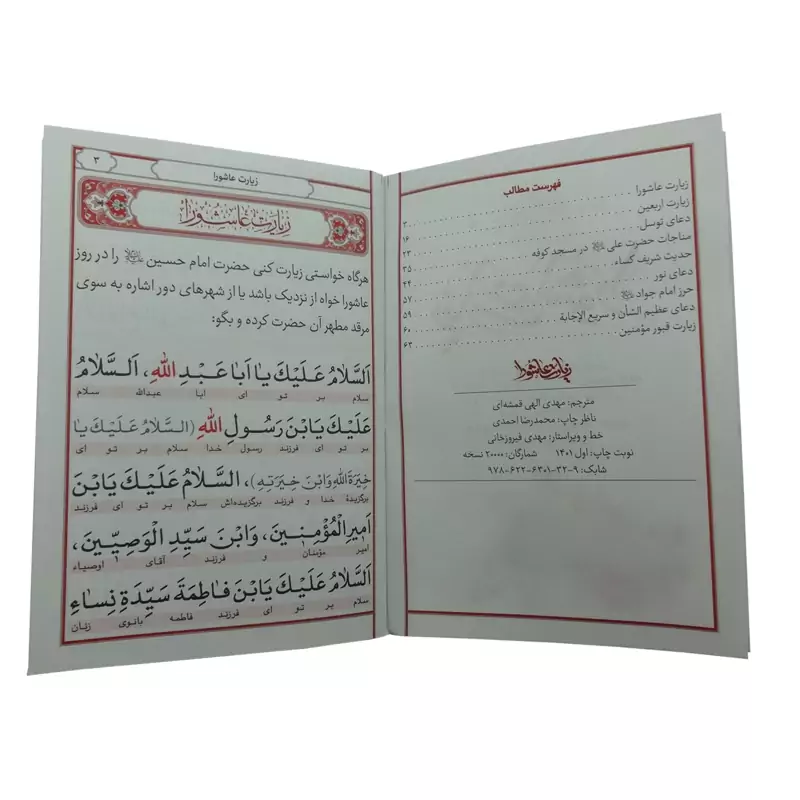 فهرست مطالب
زیارت عاشورا ۳
زیارت اربعین ۱۶
دعای توسل ۲۳
مناجات حضرت علی علیه‌السلام در مسجد کوفه ۳۵
حدیث شریف کساء ۴۴
دعای نور ۵۷
حرز امام جواد علیه‌السلام ۵۹
دعای عظیم الشأن و سریع الإجابة ۶۰
زیارت قبور مؤمنین ۶۳
زیارت عاشورا
مترجم: مهدی الهی قمشه‌ای
ناظر چاپ: محمدرضا احمدی
خط و ویراستار: مهدی فیروزخانی
نوبت چاپ: اول ۱۴۰۱ شمارگان: ۲۰۰۰۰ نسخه
شابک: ۹-۳۲-۶۳۰۱-۶۲۲-۹۷۸
زیارت عاشورا ۳
زیارت عاشورا
هرگاه خواستی زیارت کنی حضرت امام حسین علیه‌السلام را در روز
عاشورا خواه از نزدیک باشد یا از شهرهای دور اشاره به سوی
مرقد مطهر آن حضرت کرده و بگو:
اَلسَّلامُ عَلَيْكَ يا اَبا عَبْدِ اللهِ، اَلسَّلامُ
سلام بر تو ای ابا عبدالله سلام
عَلَيْكَ يَابْنَ رَسُولِ اللهِ (اَلسَّلامُ عَلَيْكَ يا
بر تو ای فرزند رسول خدا سلام بر تو ای
خِيَرَةَ اللهِ وَابْنَ خِيَرَتِهِ)، اَلسَّلامُ عَلَيْكَ يَابْنَ
برگزیدۀ خدا و فرزند برگزیده‌اش سلام بر تو ای فرزند
اَمِيرِ الْمُؤْمِنِينَ، وَابْنَ سَيِّدِ الْوَصِيِّينَ،
امیر مؤمنان و فرزند آقای اوصیاء
اَلسَّلامُ عَلَيْكَ يَابْنَ فاطِمَةَ سَيِّدَةِ نِساءِ
سلام بر تو ای فرزند فاطمه بانوی زنان